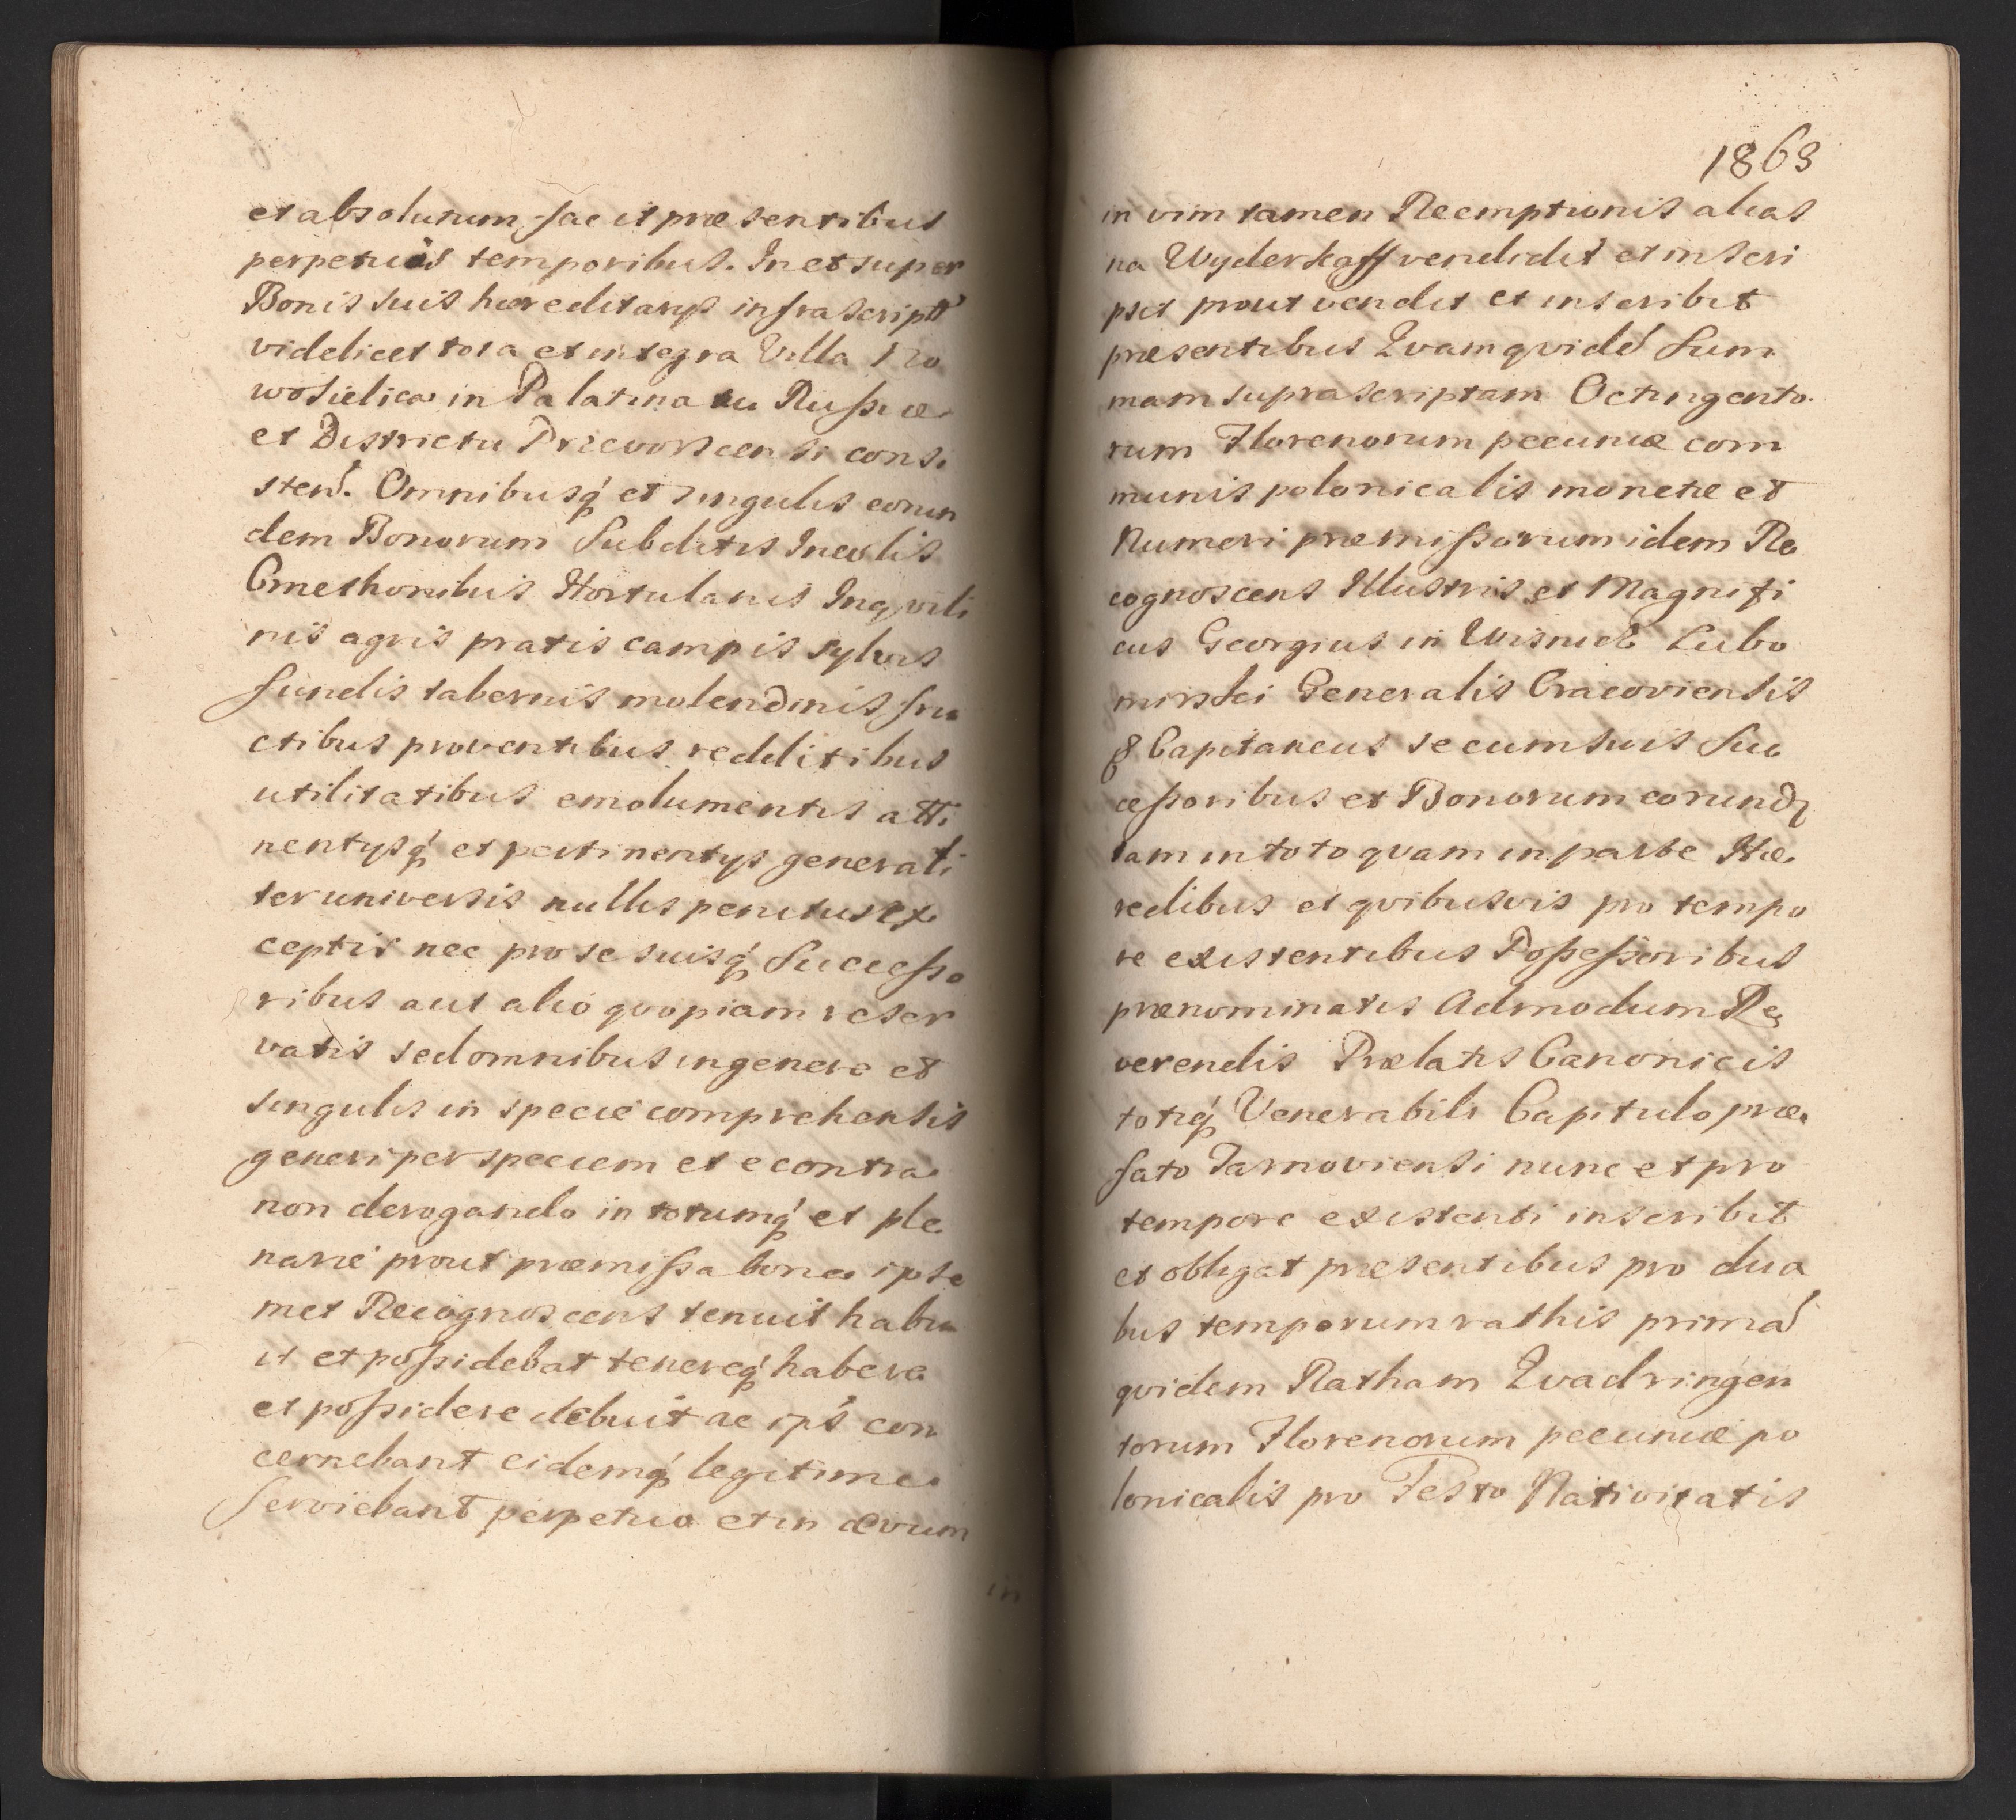 et absolutum facit præsentibus
perpetuis temporibus. In et super
Bonis suis hæreditarys infrascriptt
videlicet tota et integra Villa No
wosielica in Palatinatu Russiæ
et Districtu Przevorscensi consi
sten. Omnibusq́ et singulis eorun
dem Bonorum Subditis Incolis
Cmethonibus Hortulanis Inqvili
nis agris pratis campis sylvis
fundis tabernis molendinis fru
ctibus proventibus redditibus
utilitatibus emolumentis atti
nentysq́ et pertinentys generali
ter universis nullis penitus ex
ceptis nec pro se suisq́ Successo
ribus aut alio qvopiam reser
vatis sed omnibus in genere et
singulis in specie comprehensis
generi per speciem et e contra
non derogando in totumq́ et ple
narie prout præmissa bona ipse
met Recognoscens tenuit habu
it et possidebat tenereq́ habere
et possidere debuit ac ips̃ con
cernebant eidemq́ legitime
serviebant perpetuo et in ævum
in
1863
in vim tamen Reemptionis alias
na Wyderkaff vendidit et inscri
psit prout vendit et inscribit
præsentibus Qvamqvidé Sum
mam suprascriptam Octingento
rum Florenorum pecuniæ com
munis polonicalis monetæ et
Numeri præmissorum idem Re
cognoscens Illustris et Magnifi
cus Georgius in Wisnicz Lubo
mirski Generalis Cracoviensis
& Capitaneus secum suis Suc
cessoribus et Bonorum eorundq
tam in toto qvam in parte Hæ
redibus et qvibusvis pro tempo
re existentibus Possessoribus
prænominatis Admodum Re
verendis Prælatis Canonicis
totiq́ Venerabili Capitulo præ
fato Tarnoviensi nunc et pro
tempore existenti inscribit
et obligat præsentibus pro dua
bus temporum rathis primá
qvidem Ratham Qvadringen
torum Florenorum pecuniæ po
lonicalis pro Festo Nativitatis